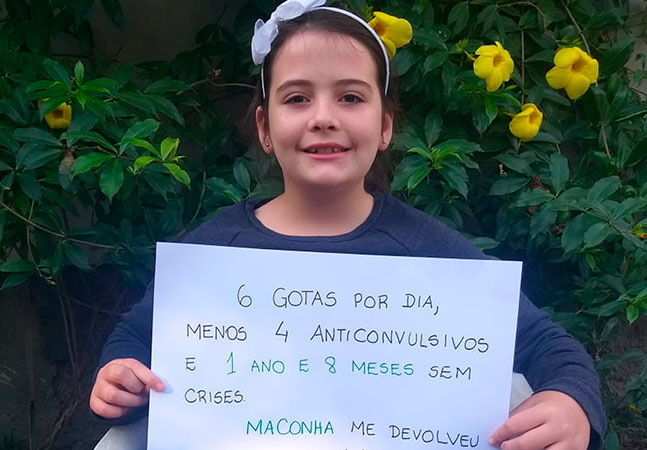 6 GOTAS POR DIA,
MENOS 4 ANTICONVULSIVOS
E 1 ANO E 8 MESES SEM
CRISES.
MACONHA ME DEVOLVEU